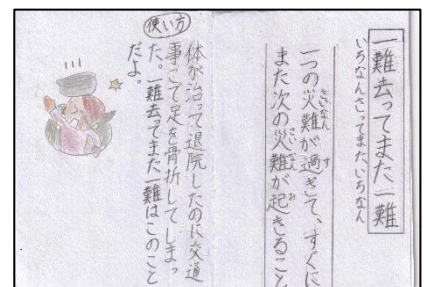 一難去ってまた一難
いちなんさってまたいちなん
一つの災難が過ぎて、すぐに
さいなん
す
また次の災難が起きること
さいなん
お
使い方
体が治って退院したのに交通
事こで足を骨折してしまっ
た。一難去ってまた一難はこのこと
だよ。